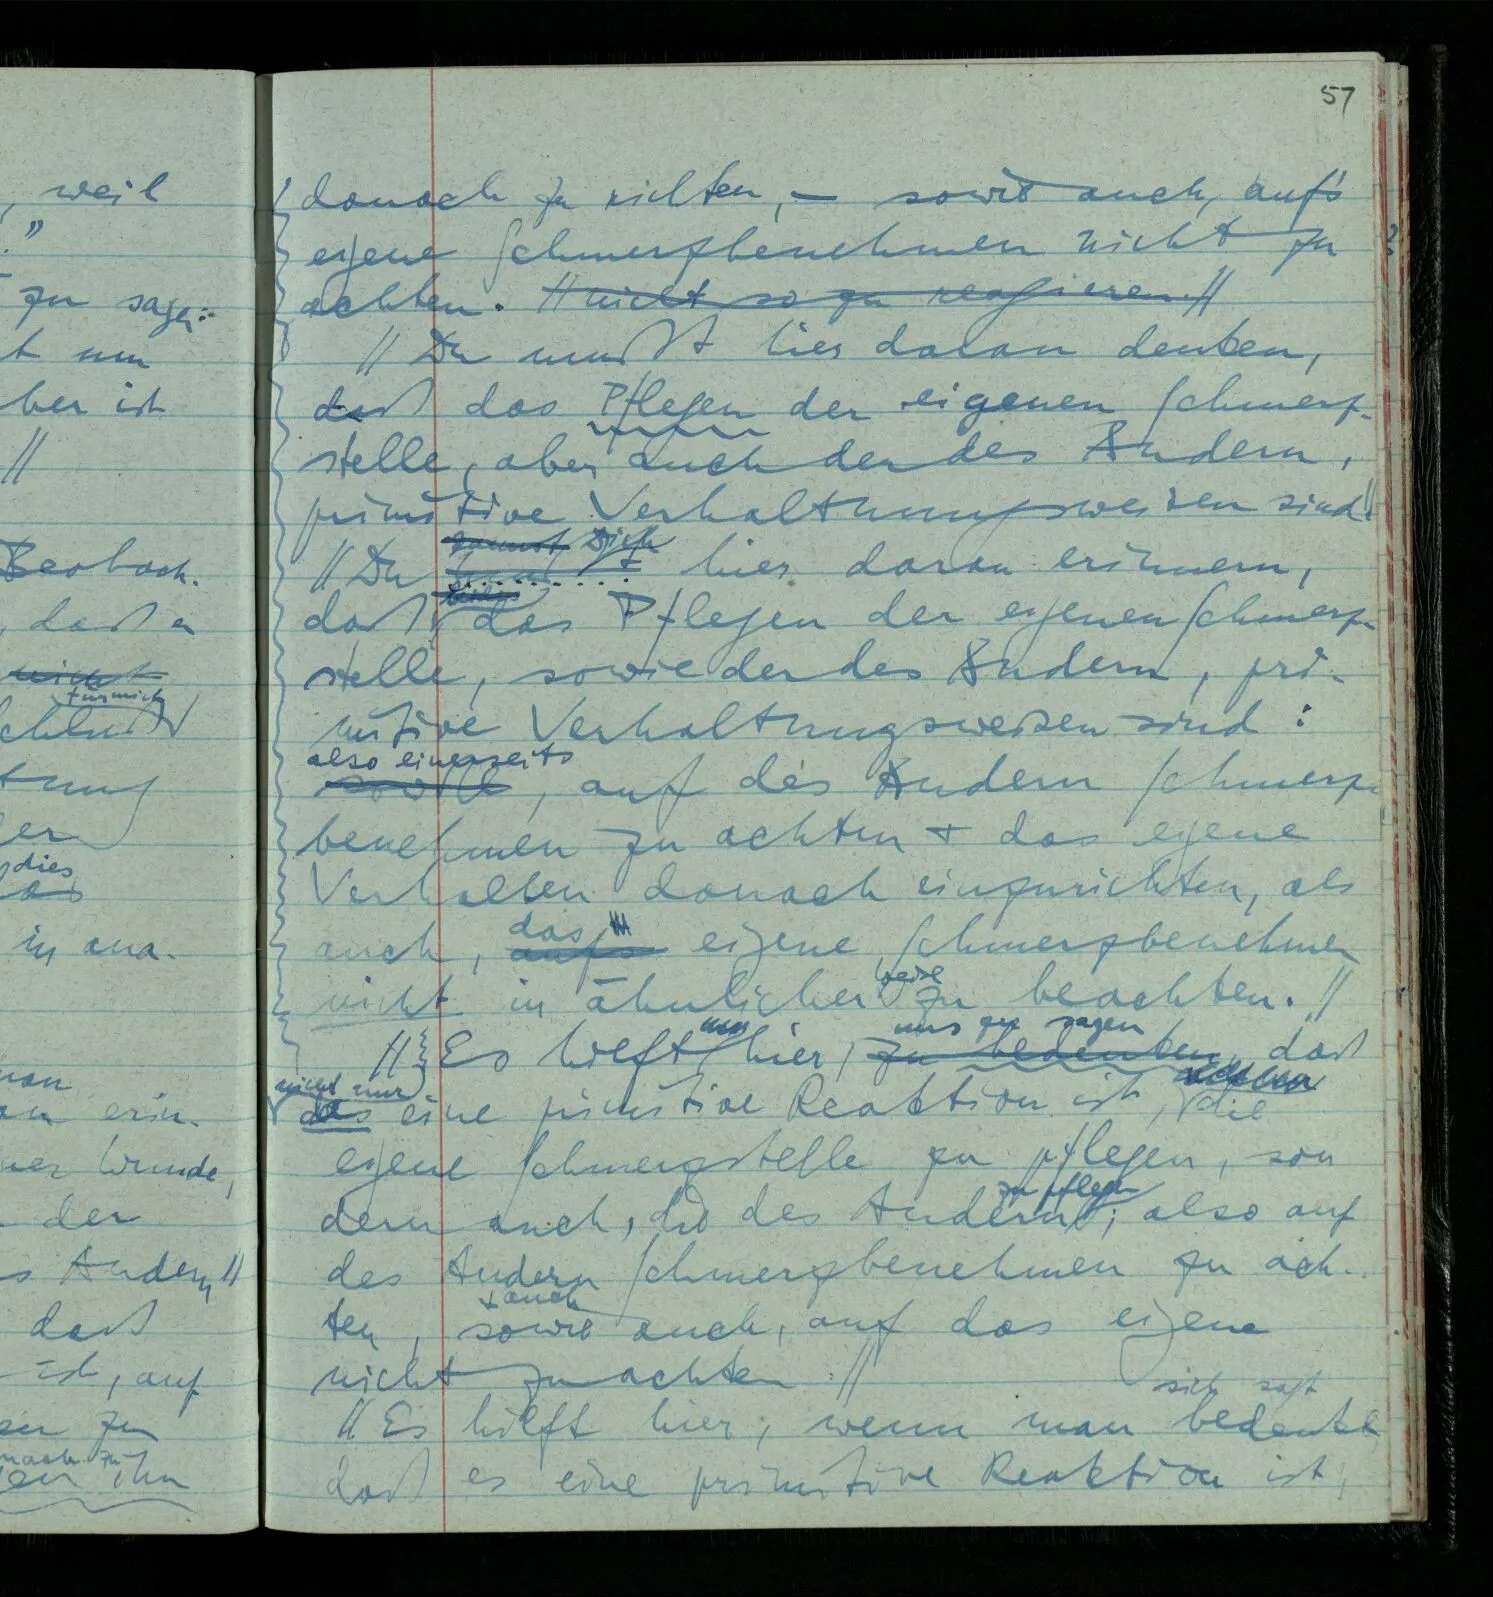 , weil
."
zu sagen:
t nun
ber ist
//
Beobach-
, daß er
nicht
für mich
schließt
tung
er
dies
das
in ana-
man
an erin-
ner Wunde,
der
s Andern //
daß
ist, auf
en zu
nach zu
en ihn
57
danach zu richten, – sowie auch, auf's
eigene Schmerzbenehmen nicht zu
achten. // nicht so zu reagieren. //
// Du mußt hier daran denken,
daß das Pflegen der eigenen Schmerz-
stelle, aber auch der des Andern,
primitive Verhaltungsweisen sind. //
kannst Dich
// Du hier daran erinnern,
daß das Pflegen der eigenen Schmerz-
stelle, sowie der des Andern, pri-
mitive Verhaltungsweisen sind:
also einerseits
sowohl, auf des Andern Schmerz-
benehmen zu achten + das eigene
Verhalten danach einzurichten, als
das
auch, aufs eigene Schmerzbenehmen
weise
nicht in ähnlicher zu beachten. //
nun uns zu sagen
// Es hilft hier, zu bedenken, daß
nicht nur
das eine primitive Reaktion ist, die
eigene Schmerzstelle zu pflegen, son
zu pflegen
dern auch, die des Andern; also auf
des Andern Schmerzbenehmen zu ach-
+ auch
ten, sowie auch, auf das eigene
nicht zu achten. //
sich sagt
// Es hilft hier, wenn man bedenkt
daß es eine primitive Reaktion ist,